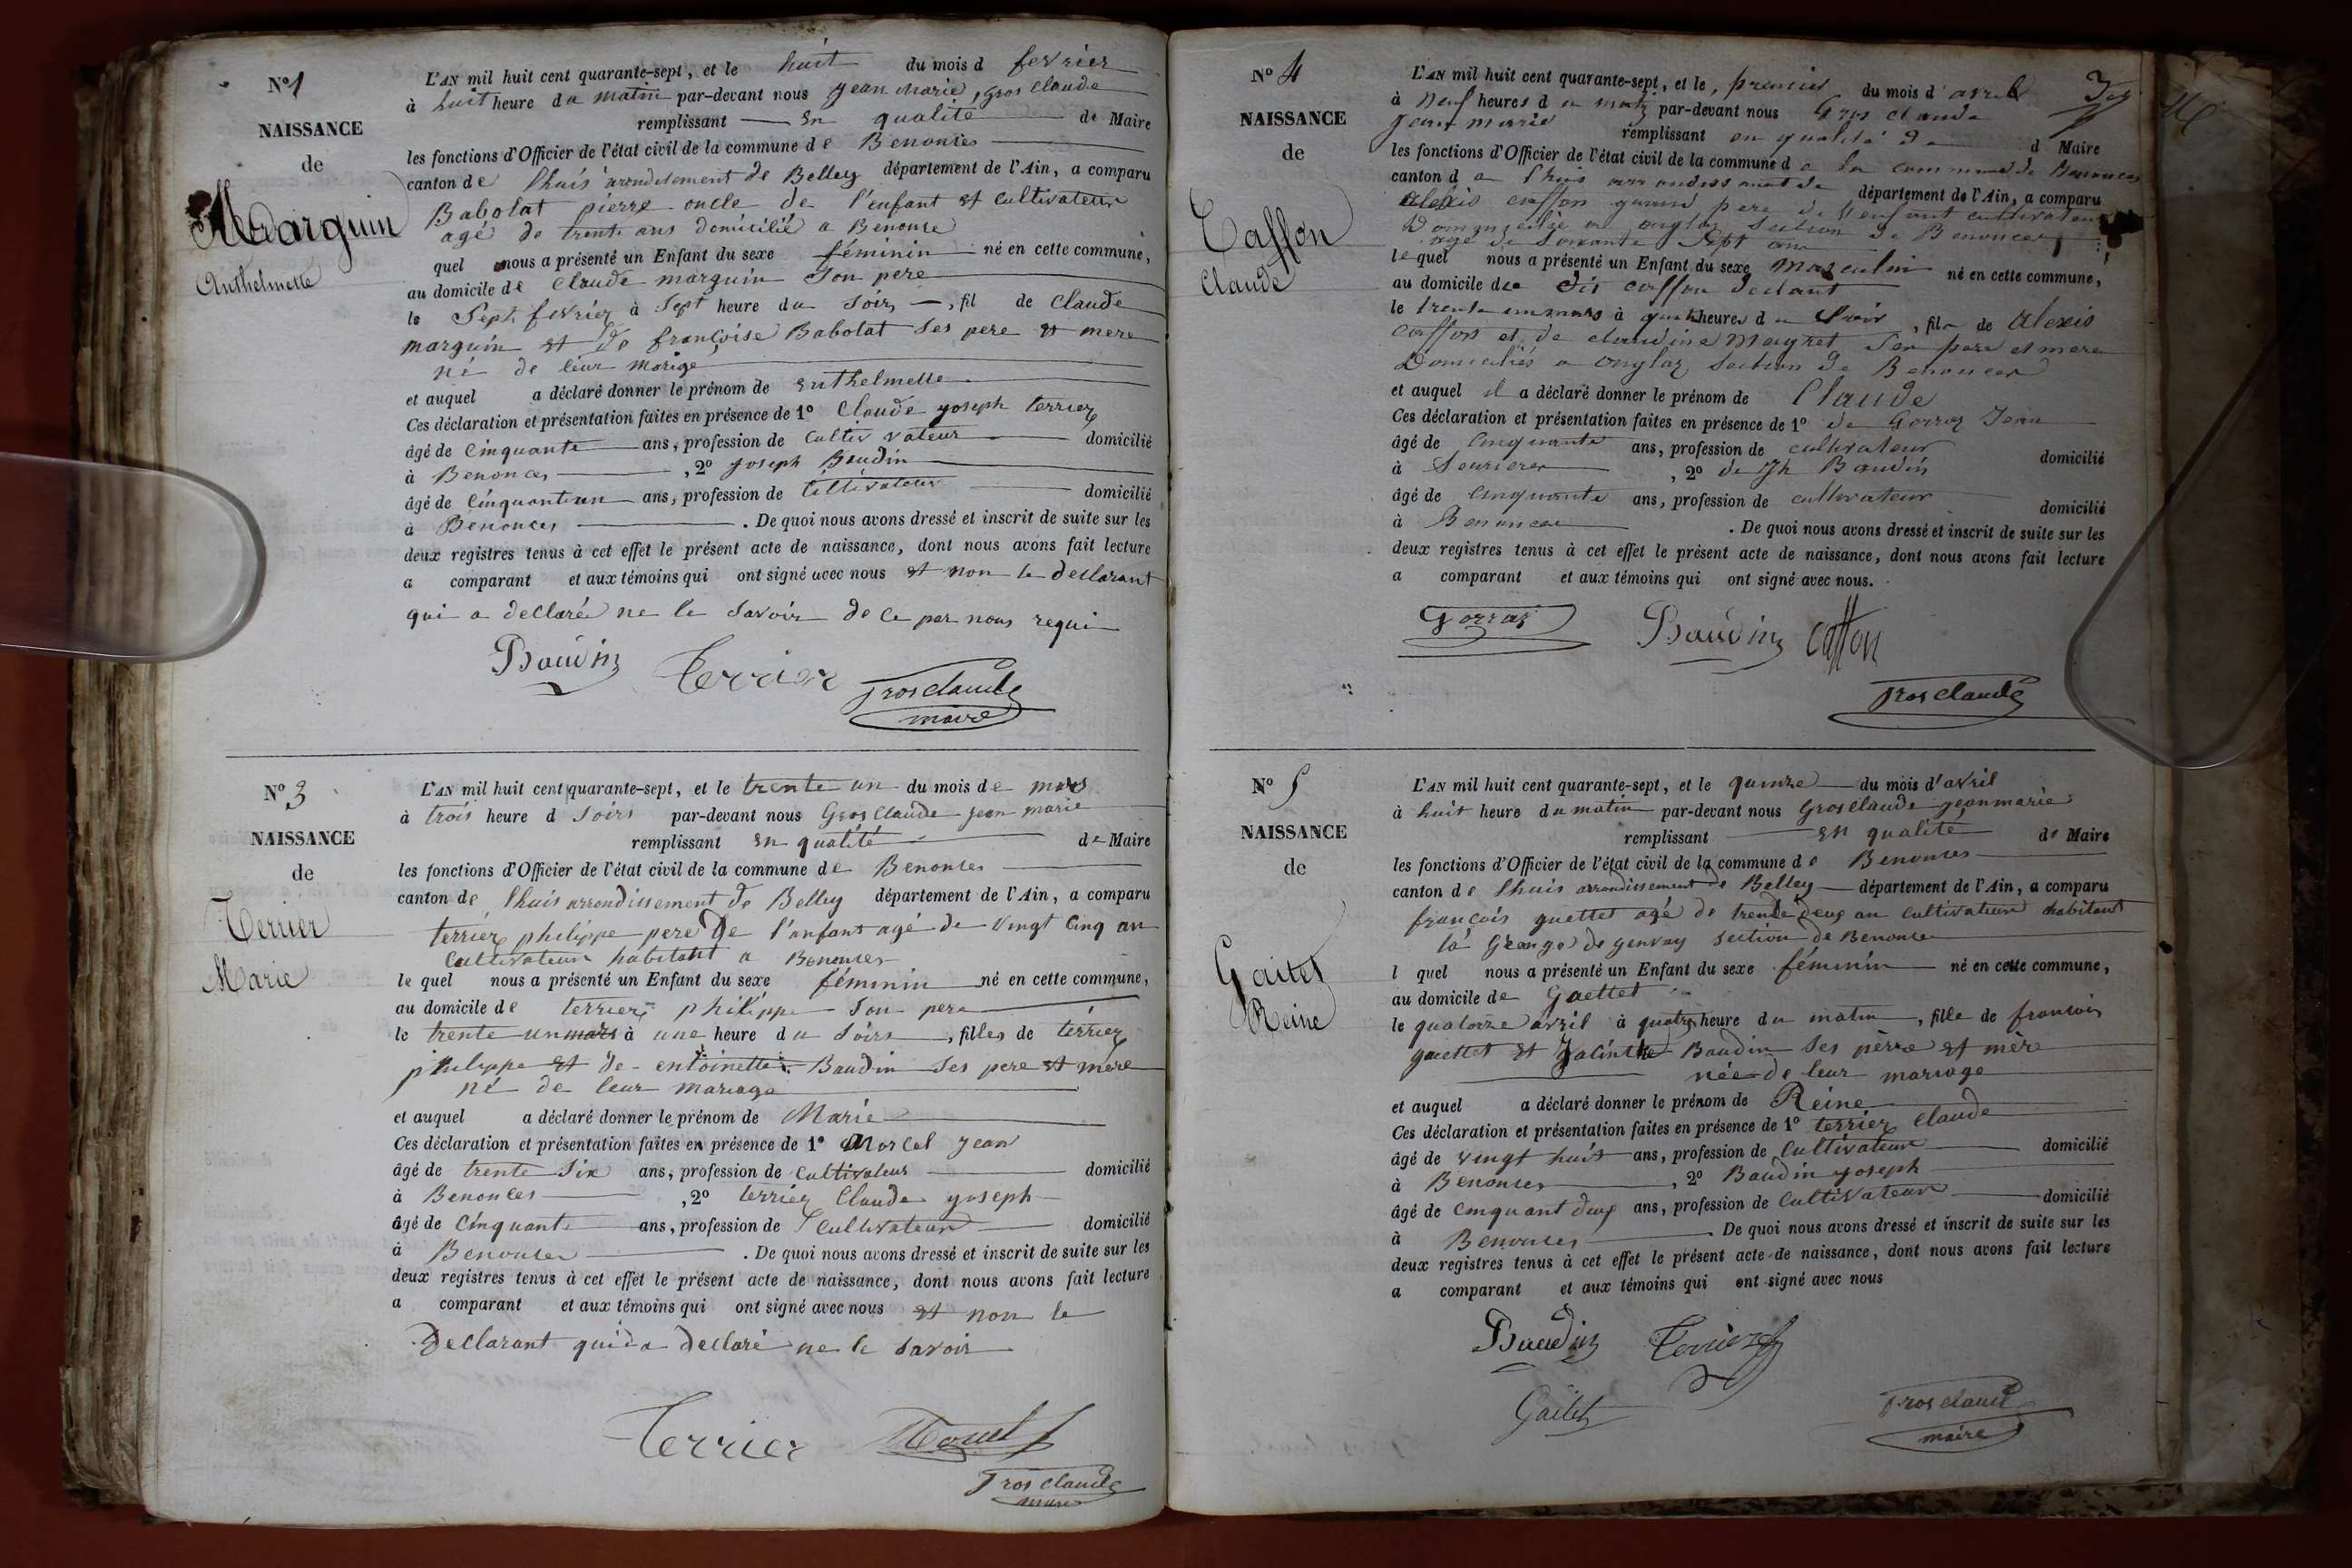 N° 1
NAISSANCE
de
Marguin
Anthelmette
L'AN mil huit cent quarante-sept, et le huit du mois d fevrier
à huit heure du matin par-devant nous jean marie, gros claude
remplissant en qualité de Maire
les fonctions d'Officier de l'état civil de la commune de Benonces
canton de Lhuis arrondisement de Belley département de l'Ain, a comparu
Babolat pierre oncle de l'enfant et cultivateur
agé de trente ans domicilié a Benonce
quel nous a présenté un Enfant du sexe féminin né en cette commune,
au domicile de Claude marguin son pere
le Sept fevrier à sept heure du soir, fil de claude
marguin et de françoise Babolat ses pere et mere
né de leur marige
et auquel a déclaré donner le prénom de enthelmette
Ces déclaration et présentation faites en présence de 1° Claude joseph terrier
âgé de Cinquante ans, profession de cultivateur domicilié
à Benonces, 2° joseph Baudin
âgé de Cinquantun ans, profession de Cultivateur domicilié
à Benonces. De quoi nous avons dressé et inscrit de suite sur les
deux registres tenus à cet effet le présent acte de naissance, dont nous avons fait lecture
a comparant et aux témoins qui ont signé avec nous et non le declarant
qui a declaré ne le savoir de ce par nous requi
Baudin Terrier Grosclaude
maire
N° 3
NAISSANCE
de
Terrier
Marie
L'AN mil huit cent quarante-sept, et le trente un du mois de mars
à trois heure d soirs par-devant nous Gros Claude jean marie
remplissant en qualité de Maire
les fonctions d'Officier de l'état civil de la commune de Benonces
canton de Lhuis arrondissement de Belley département de l'Ain, a comparu
terrier philippe pere de l'anfant agé de vingt cinq an
Cultivateur habitant a Benonces
le quel nous a présenté un Enfant du sexe féminin né en cette commune,
au domicile de terrier philippe son pere
le trente un mars à une heure du soirs, filles de terrier
philippe et de entoinette Baudin ses pere et mère
né de leur mariage
et auquel a déclaré donner le prénom de Marie
Ces déclaration et présentation faites en présence de 1° Morcel jean
âgé de trente six ans, profession de cultivateur domicilié
à Benonces, 2° terrier Claude joseph
âgé de Cinquante ans, profession de Cultivateur domicilié
à Benonces. De quoi nous avons dressé et inscrit de suite sur les
deux registres tenus à cet effet le présent acte de naissance, dont nous avons fait lecture
a comparant et aux témoins qui ont signé avec nous et non le
Declarant qui a declaré ne le savoir
Terrier Morcel
Grosclaude
maire
N° 4
NAISSANCE
de
Caffon
Claude
L'AN mil huit cent quarante-sept, et le, premier du mois d'avril
à neuf heures du matin par-devant nous Gros claude
jean marie remplissant en qualité de d Maire
les fonctions d'Officier de l'état civil de la commune de la commune de Benonces
canton d Lhuis arrondissement de département de l'Ain, a comparu
alexis caffon grand pere de l'enfant cultivateur
Dommicilié a onglas section de Benonces
age de soixante sept ans
lequel nous a présenté un Enfant du sexe masculin né en cette commune,
au domicile du dit caffon declarant
le trente un mars à heures du soir, fils de alexis
caffon et de claudine Maigret ses pere et mere
Domiciliés a onglas section de Benonces
et auquel il a déclaré donner le prénom de Claude
Ces déclaration et présentation faites en présence de 1° de Gorraz Jean
âgé de cinquante ans, profession de cultivateur domicilié
à, 2° de jh Baudin
âgé de cinquante ans, profession de cultivateur domicilié
à Benonces. De quoi nous avons dressé et inscrit de suite sur les
deux registres tenus à cet effet le présent acte de naissance, dont nous avons fait lecture
a comparant et aux témoins qui ont signé avec nous.
Gorraz Baudin caffon
Grosclaude
N° 5
NAISSANCE
de
Gaitet
Reine
L'AN mil huit cent quarante-sept, et le quinze du mois d'avril
à huit heure du matin par-devant nous Grosclaude jeanmarie
remplissant en qualité de Maire
les fonctions d'Officier de l'état civil de la commune de Benonces
canton de Lhuis arrondissement de Belley département de l'Ain, a comparu
françois guettet agé de trente deux an cultivateur habitant
la Grange de genvay section de Benonce
l quel nous a présenté un Enfant du sexe féminin né en cette commune,
au domicile de Gaettet
le quatorze avril à quatre heure du matin, fille de francois
gaettet et Jacinthe Baudin ses pèrre et mère
née de leur mariage
et auquel a déclaré donner le prénom de Reine
Ces déclaration et présentation faites en présence de 1° terrier Claude
âgé de vingt huit ans, profession de Cultivateur domicilié
à Benonces, 2° Baudin joseph
âgé de cinquant deux ans, profession de Cultivateur domicilié
à Benonces. De quoi nous avons dressé et inscrit de suite sur les
deux registres tenus à cet effet le présent acte de naissance, dont nous avons fait lecture
a comparant et aux témoins qui ont signé avec nous
Baudin Terrier
Gaitet Grosclaude
maire